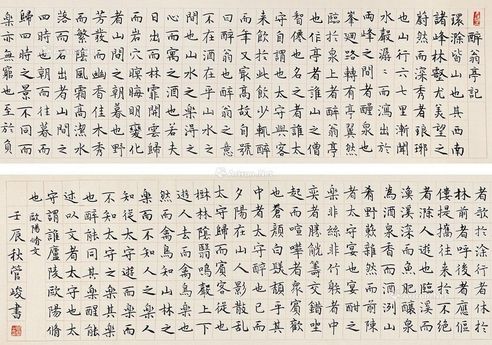 醉翁亭記
環滁皆山也其西南
諸峰林壑尤美望之
蔚然而深秀者琅琊
也山行六七里漸聞
水聲潺々而瀉出於
兩峰之間者釀泉也
峯迴路轉有亭翼然
臨於泉上者醉翁亭
也作亭者誰山之僧
智僊也名之者誰太
守自謂也太守與客
來飲於此飲少輒醉
而年又最高故自號
曰醉翁也醉翁之意
不在酒在乎山水之
間也山水之樂得之
心而寓之酒也若夫
日出而林霏開雲歸
而巖穴暝晦明變化
者山間之朝暮也野
芳發而幽香佳木秀
而繁陰風霜高潔水
落而石出者山間之
四時也朝而往暮而
歸四時之景不同而
樂亦無窮也至於負
者歌於途者休於
林前者呼後者應傴
僂提攜往來而不絕
者滁人遊也臨溪而
漁溪深而魚肥釀泉
為酒泉香而酒洌山
肴野蔌雜然而前陳
者太守宴也宴酣之
樂非絲非竹射者中
奕者勝觥籌交錯坐
起而喧嘩者眾賓歡
也蒼顏白髮頹乎其
中者太守醉也已而
夕陽在山人影散亂
太守歸而賓客從也
樹林陰翳鳴聲上下
遊人去而禽鳥樂也
然而禽鳥知山林之
樂而不知人之樂人
知從太守遊而樂而
不知太守之樂其樂
也醉能同其樂醒能
述以文者太守也太
守謂誰廬陵歐陽脩
也 歐陽脩文
壬辰秋管峻書